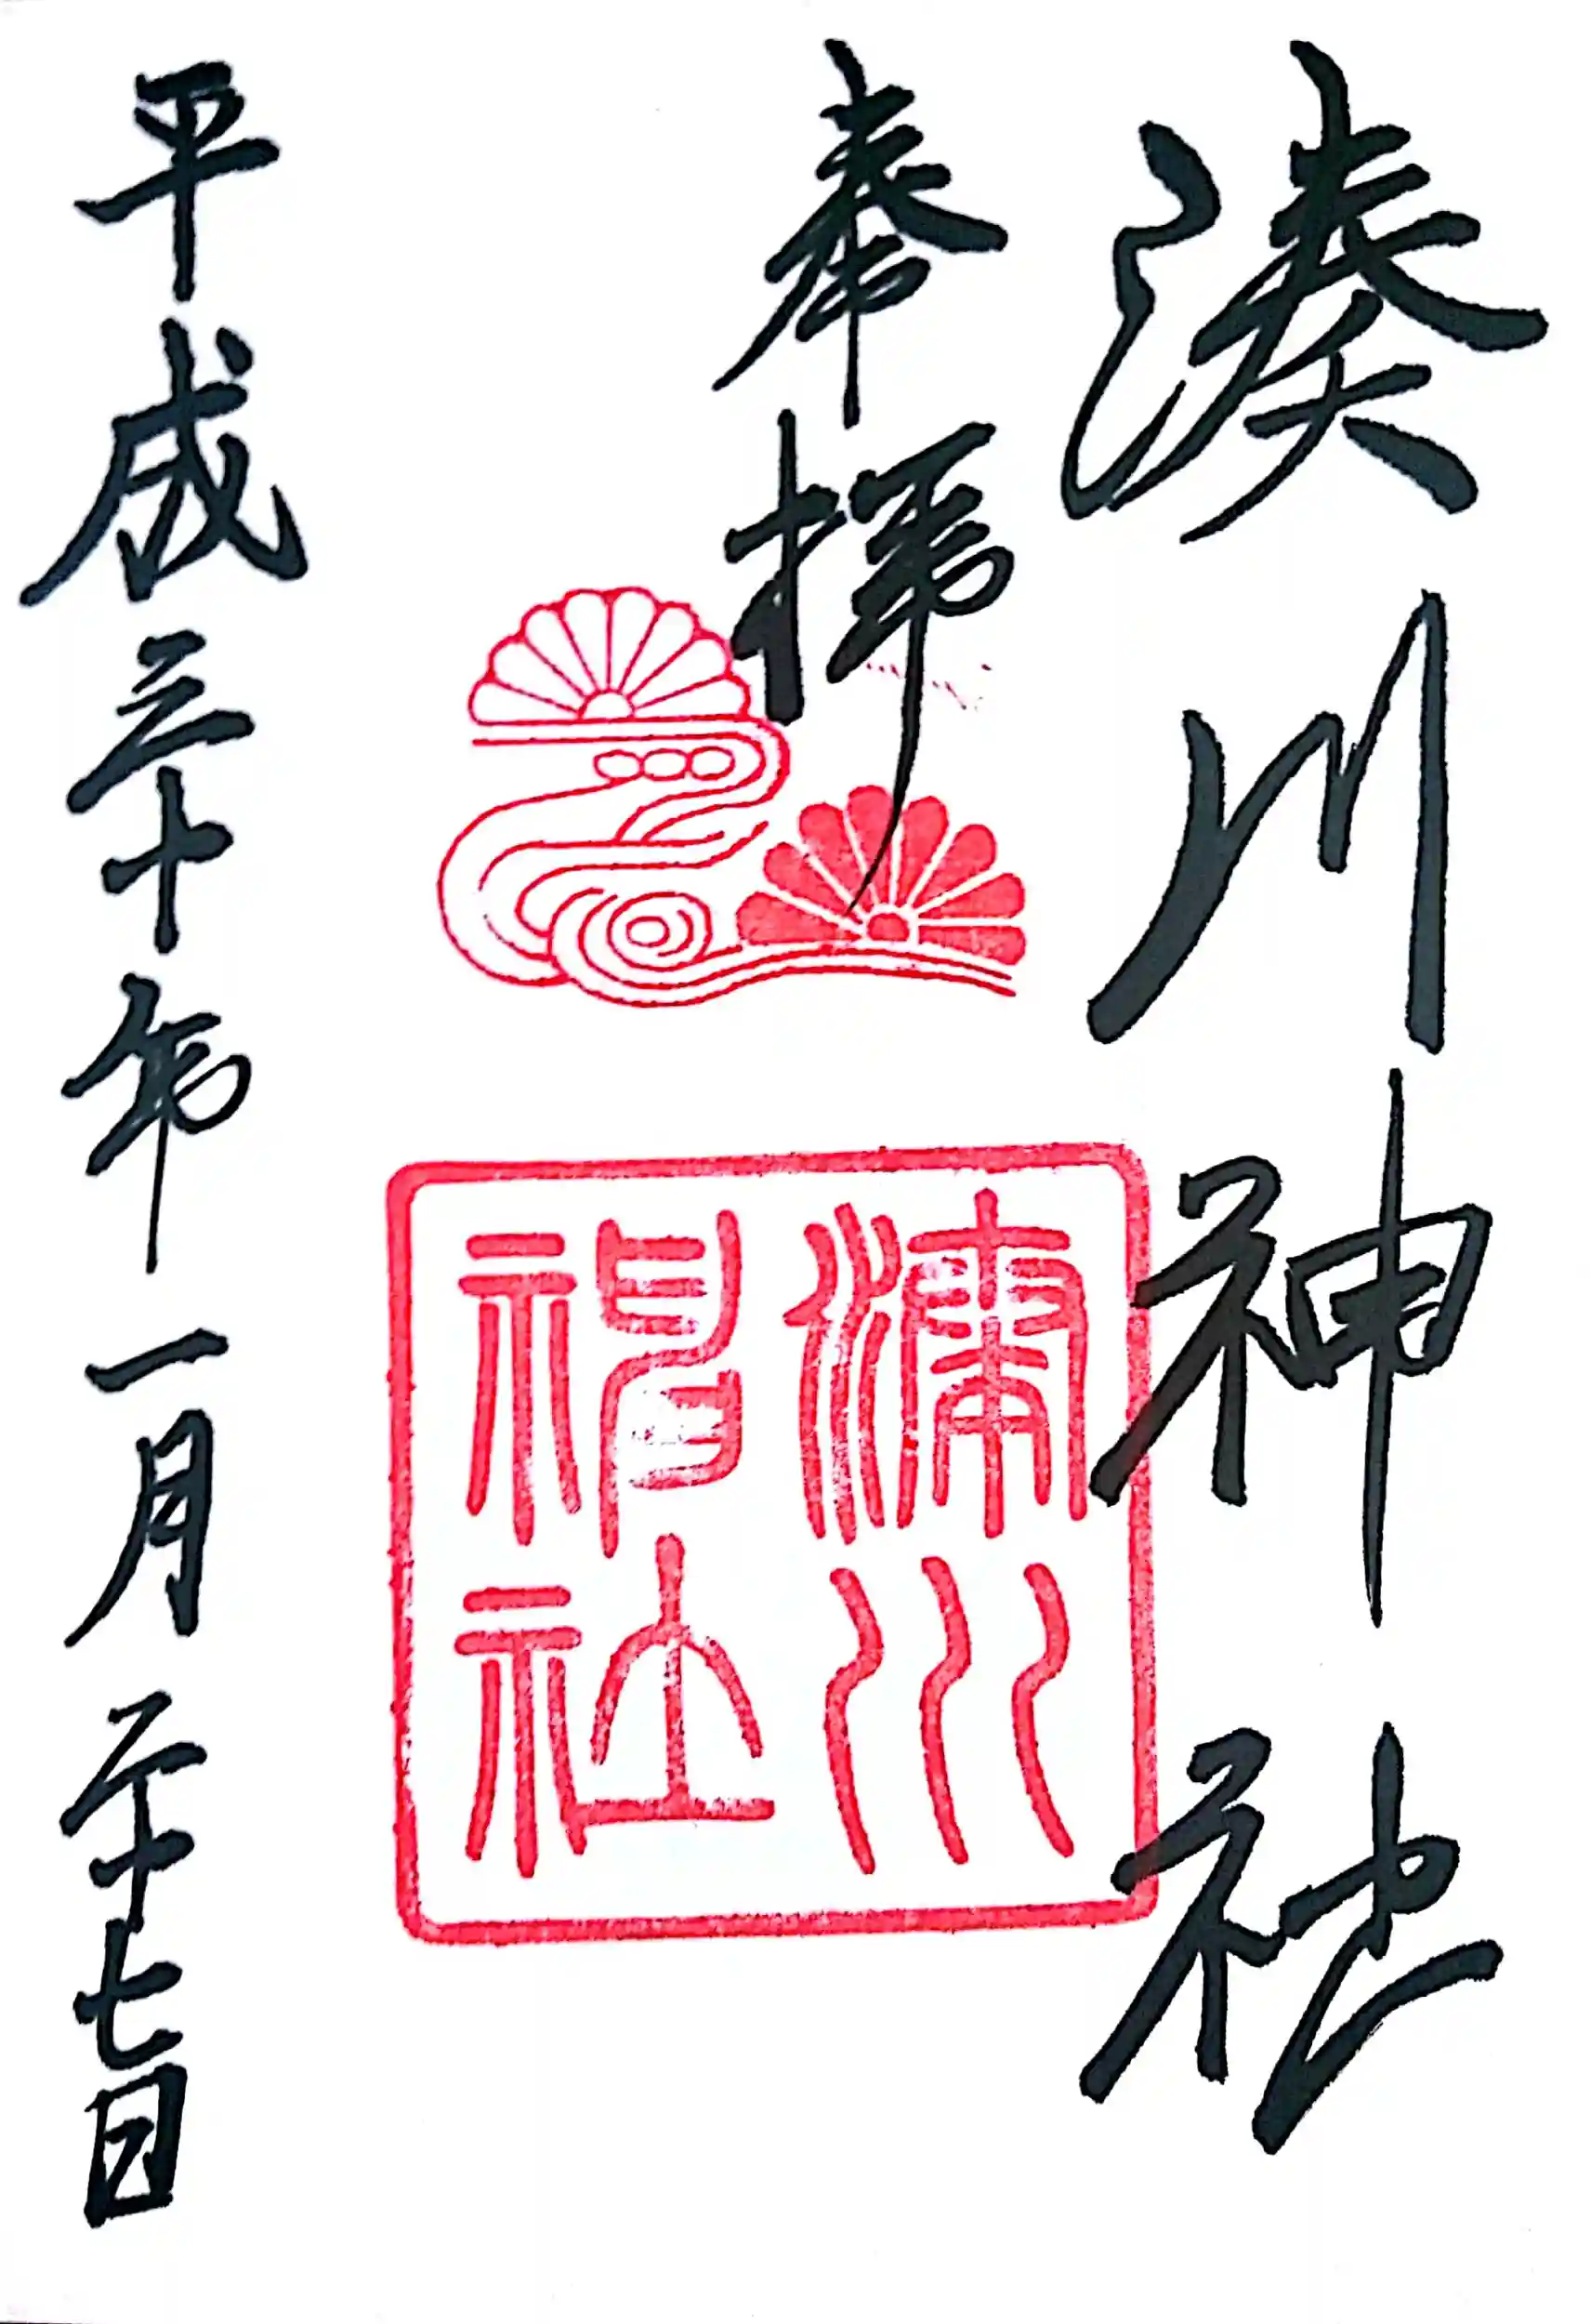 湊川神社
奉拝
湊川神社
平成三十年一月二十七日